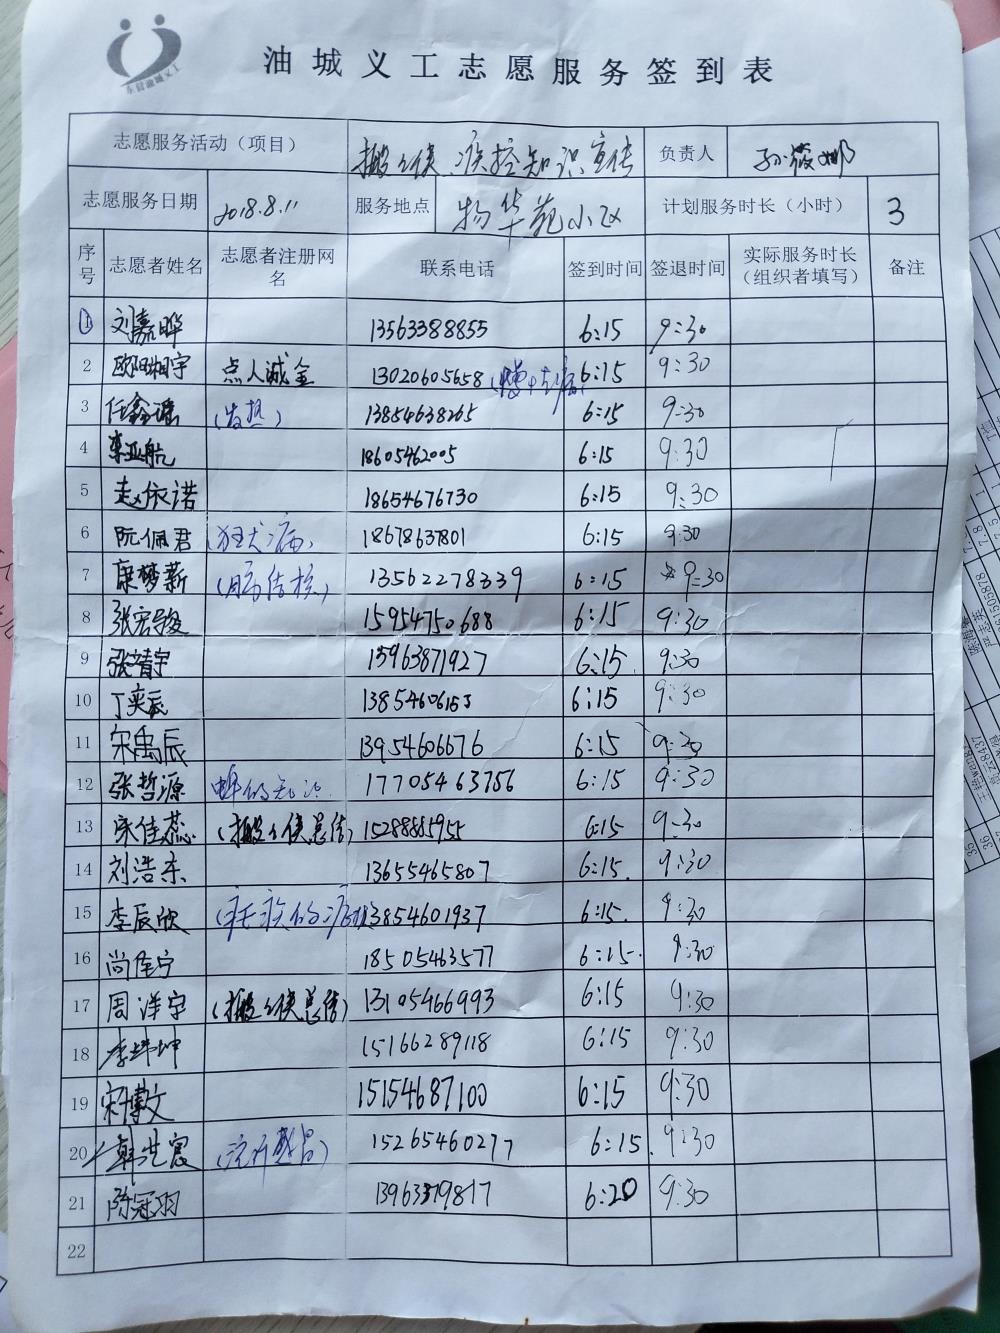 油城义工志愿服务签到表
志愿服务活动（项目） 搬之侠 疾控知识宣传 负责人 孙筱娜
志愿服务日期 2018.8.11 服务地点 物华苑小区 计划服务时长（小时） 3
序号 志愿者姓名 志愿者注册网名 联系电话 签到时间 签退时间 实际服务时长（组织者填写） 备注
1 刘嘉晔 13563388855 6:15 9:30
2 欧阳相宇 点人诚金 13020605658 6:15 9:30
3 任鑫瑶 (发热) 13854638265 6:15 9:30
4 李亚航 18605462005 6:15 9:30
5 赵依诺 18654676730 6:15 9:30
6 阮佩君 (狂犬病) 18678637801 6:15 9:30
7 康梦薪 (肺结核) 13562278339 6:15 9:30
8 张宏骏 15954750688 6:15 9:30
9 张靖宇 15963871927 6:15 9:30
10 丁奕辰 13854606153 6:15 9:30
11 宋禹辰 13954606676 6:15 9:30
12 张哲源 17705463756 6:15 9:30
13 宋佳蕊 (搬之侠总结) 15288885955 6:15 9:30
14 刘浩东 13655465807 6:15 9:30
15 李辰欣 13854601937 6:15 9:30
16 尚佳宁 18505463577 6:15 9:30
17 周洋宇 (搬之侠总结) 13105466993 6:15 9:30
18 李坤 15166289118 6:15 9:30
19 宋博文 15154687100 6:15 9:30
20 韩浩宸 (流行感冒) 15265460277 6:15 9:30
21 陈冠羽 13963379817 6:20 9:30
22